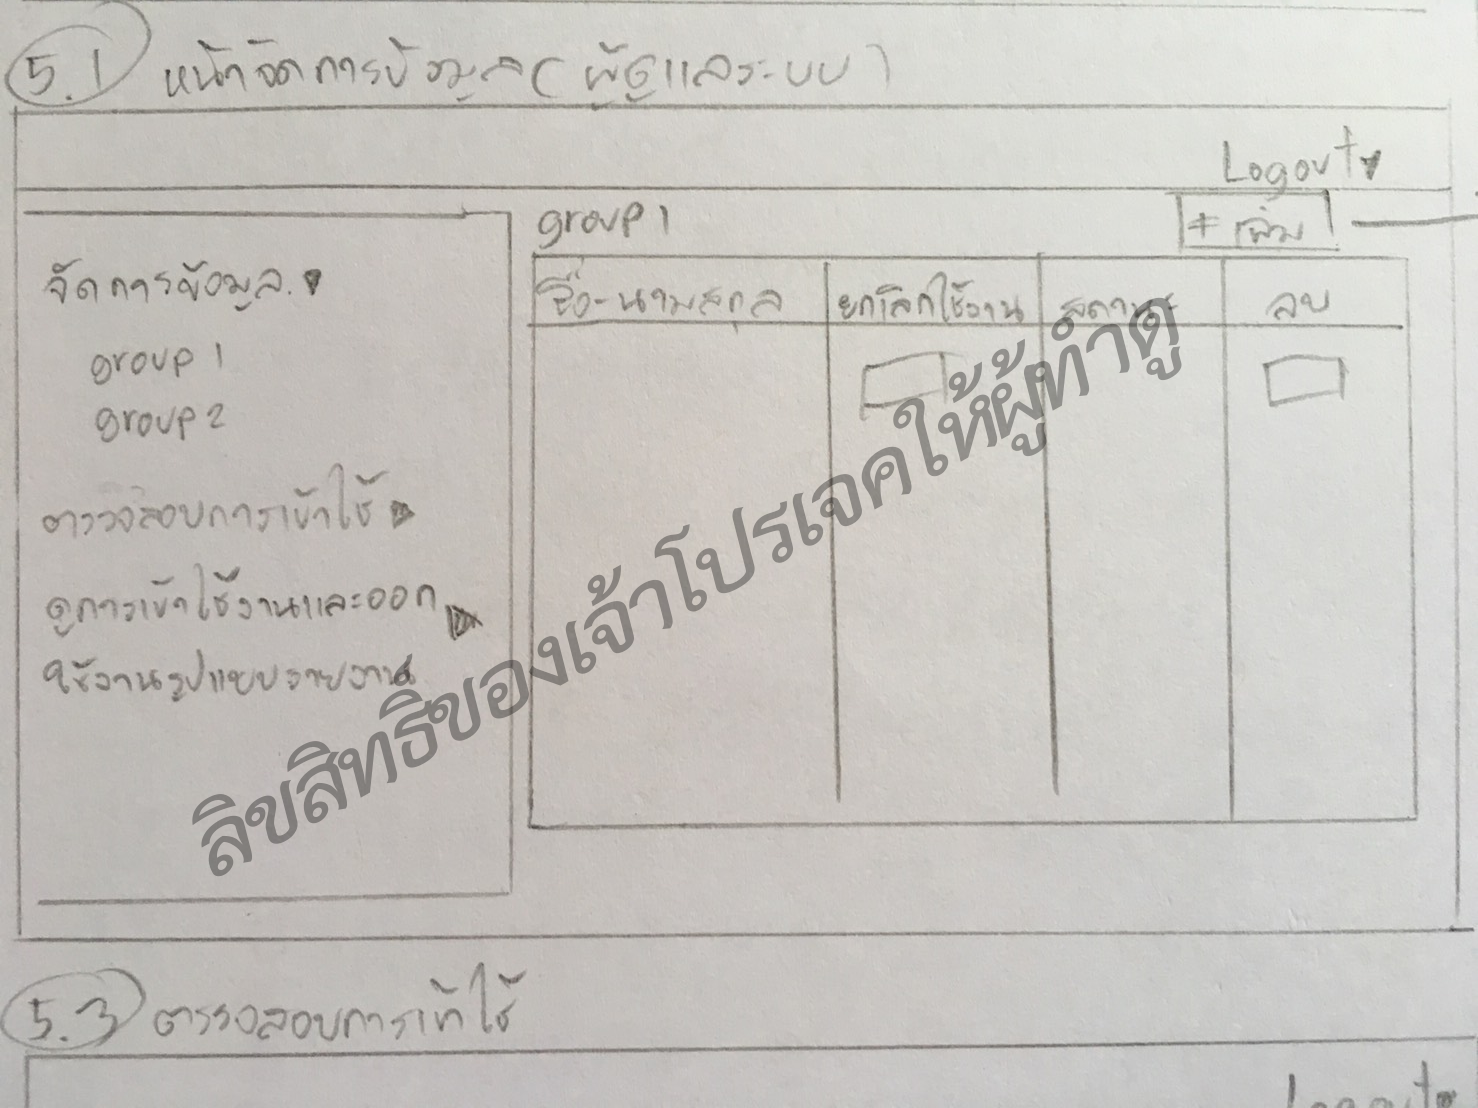 5.1 หน้าจัดการข้อมูล (ผู้ดูแลระบบ)
Logout
group 1
+ เพิ่ม
จัดการข้อมูล
group 1
group 2
ตรวจสอบการเข้าใช้
ดูการเข้าใช้งานและออก
ใช้งานรูปแบบรายงาน
ชื่อ-นามสกุล ยกเลิกใช้งาน สถานะ ลบ
ลิขสิทธิ์ของเจ้าโปรเจคให้ผู้ทำดู
5.3 ตรวจสอบการเข้าใช้
Logout